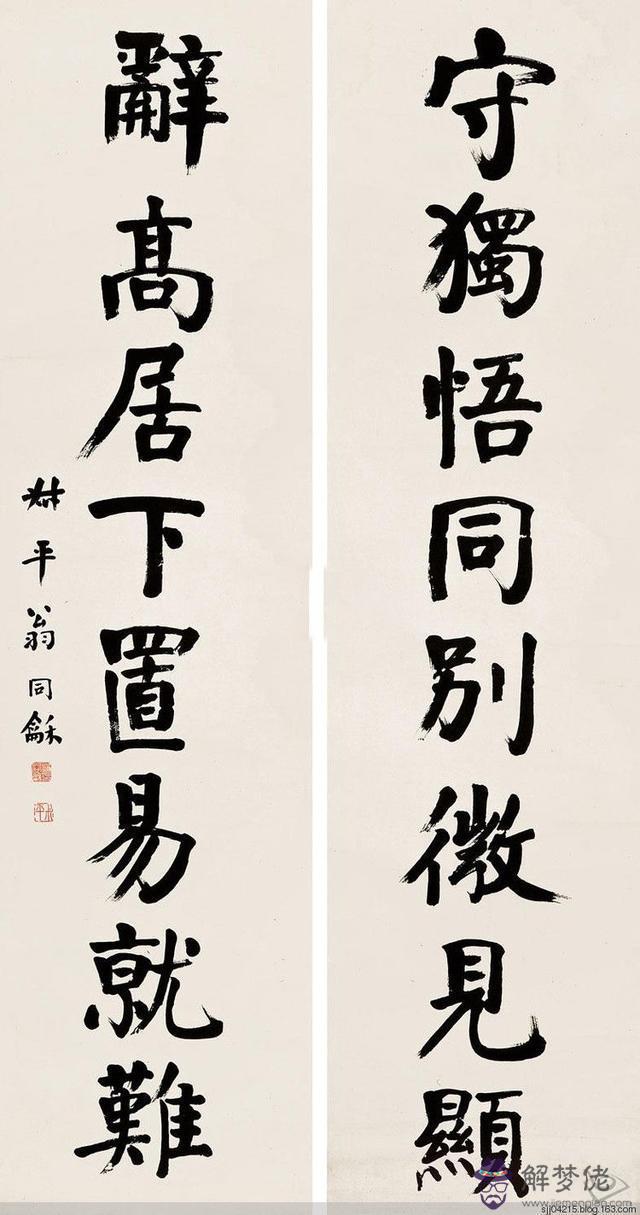 守獨悟同別微見顯
辭高居下置易就難
叔平翁同龢
解梦佬
www.jiemenglao.com
sjj04215.blog.163.com